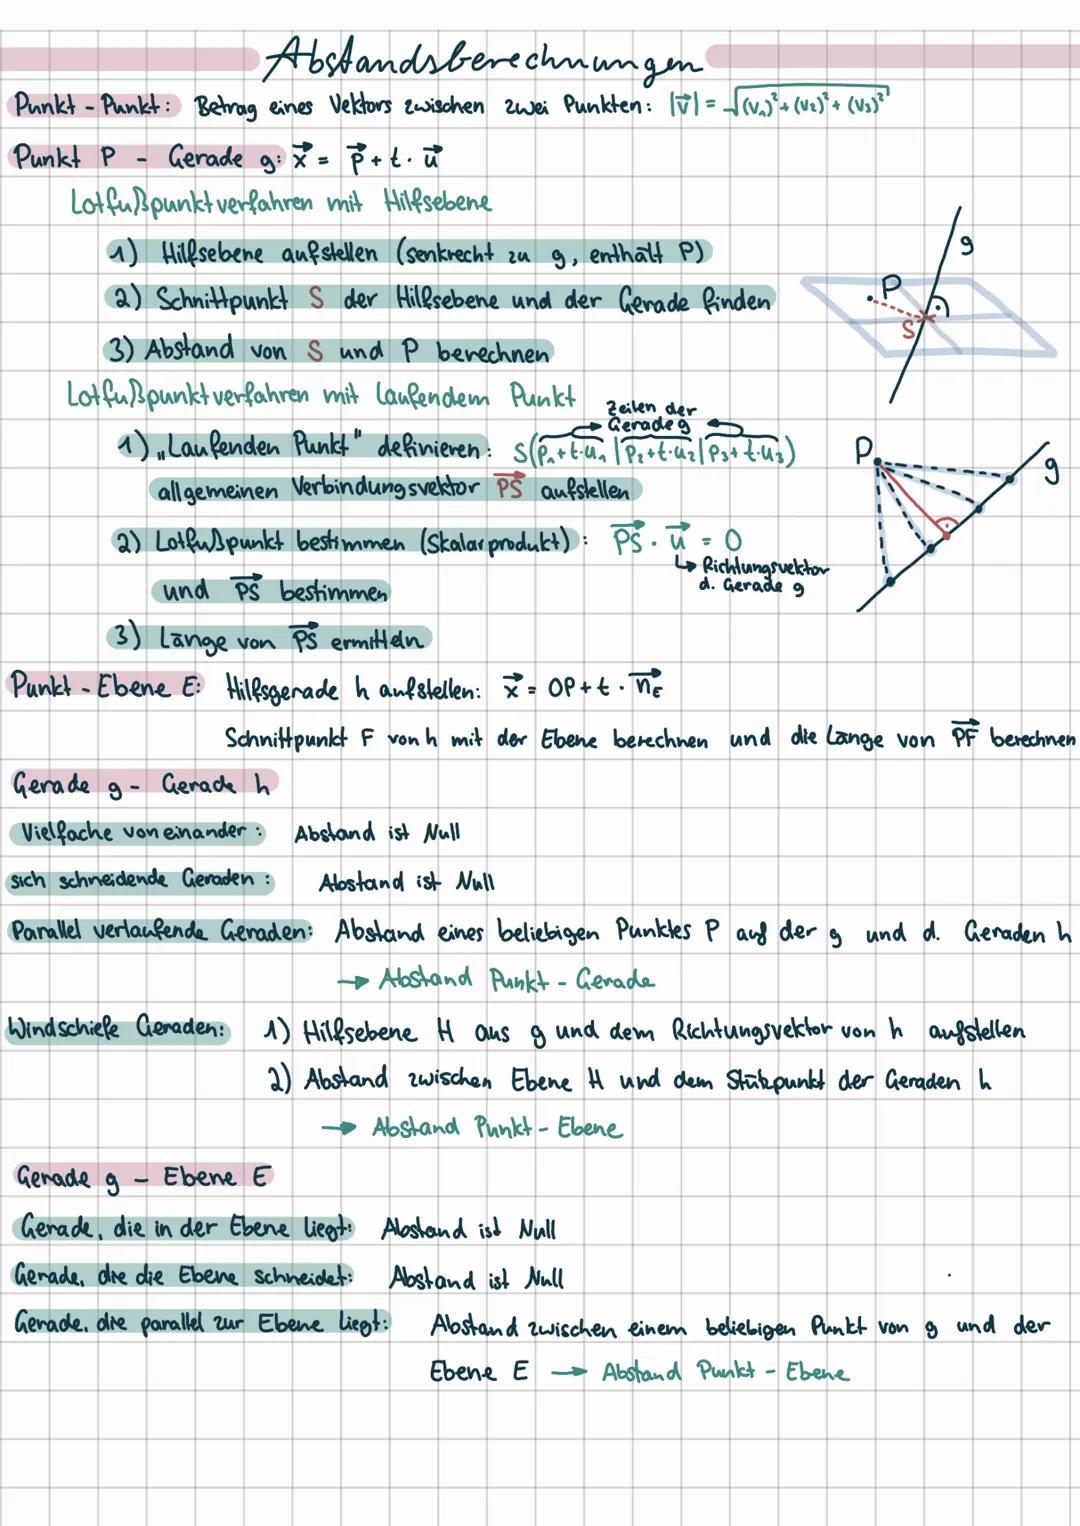 Abstandsberechnungen
Punkt - Punkt: Betrag eines Vektors zwischen zwei Punkten: |v⃗| = √((v₁)² + (v₂)² + (v₃)²)
Punkt P - Gerade g: x⃗ = p⃗ + t · u⃗
Lotfußpunktverfahren mit Hilfsebene
1) Hilfsebene aufstellen (senkrecht zu g, enthält P)
2) Schnittpunkt S der Hilfsebene und der Gerade finden
3) Abstand von S und P berechnen
g
P
S
Lotfußpunktverfahren mit laufendem Punkt
Zeilen der
Gerade g
1) „Laufenden Punkt" definieren: S(p₁+t·u₁ | p₂+t·u₂ | p₃+t·u₃)
allgemeinen Verbindungsvektor PS⃗ aufstellen
2) Lotfußpunkt bestimmen (Skalarprodukt): PS⃗ · u⃗ = 0
↳ Richtungsvektor
d. Gerade g
und PS⃗ bestimmen
3) Länge von PS⃗ ermitteln
P
g
Punkt - Ebene E: Hilfsgerade h aufstellen: x⃗ = OP + t · n⃗E
Schnittpunkt F von h mit der Ebene berechnen und die Länge von PF⃗ berechnen
Gerade g - Gerade h
Vielfache voneinander: Abstand ist Null
sich schneidende Geraden: Abstand ist Null
Parallel verlaufende Geraden: Abstand eines beliebigen Punktes P auf der g und d. Geraden h
→ Abstand Punkt - Gerade
Windschiefe Geraden: 1) Hilfsebene H aus g und dem Richtungsvektor von h aufstellen
2) Abstand zwischen Ebene H und dem Stützpunkt der Geraden h
→ Abstand Punkt - Ebene
Gerade g - Ebene E
Gerade, die in der Ebene liegt: Abstand ist Null
Gerade, die die Ebene schneidet: Abstand ist Null
Gerade, die parallel zur Ebene liegt: Abstand zwischen einem beliebigen Punkt von g und der
Ebene E → Abstand Punkt - Ebene